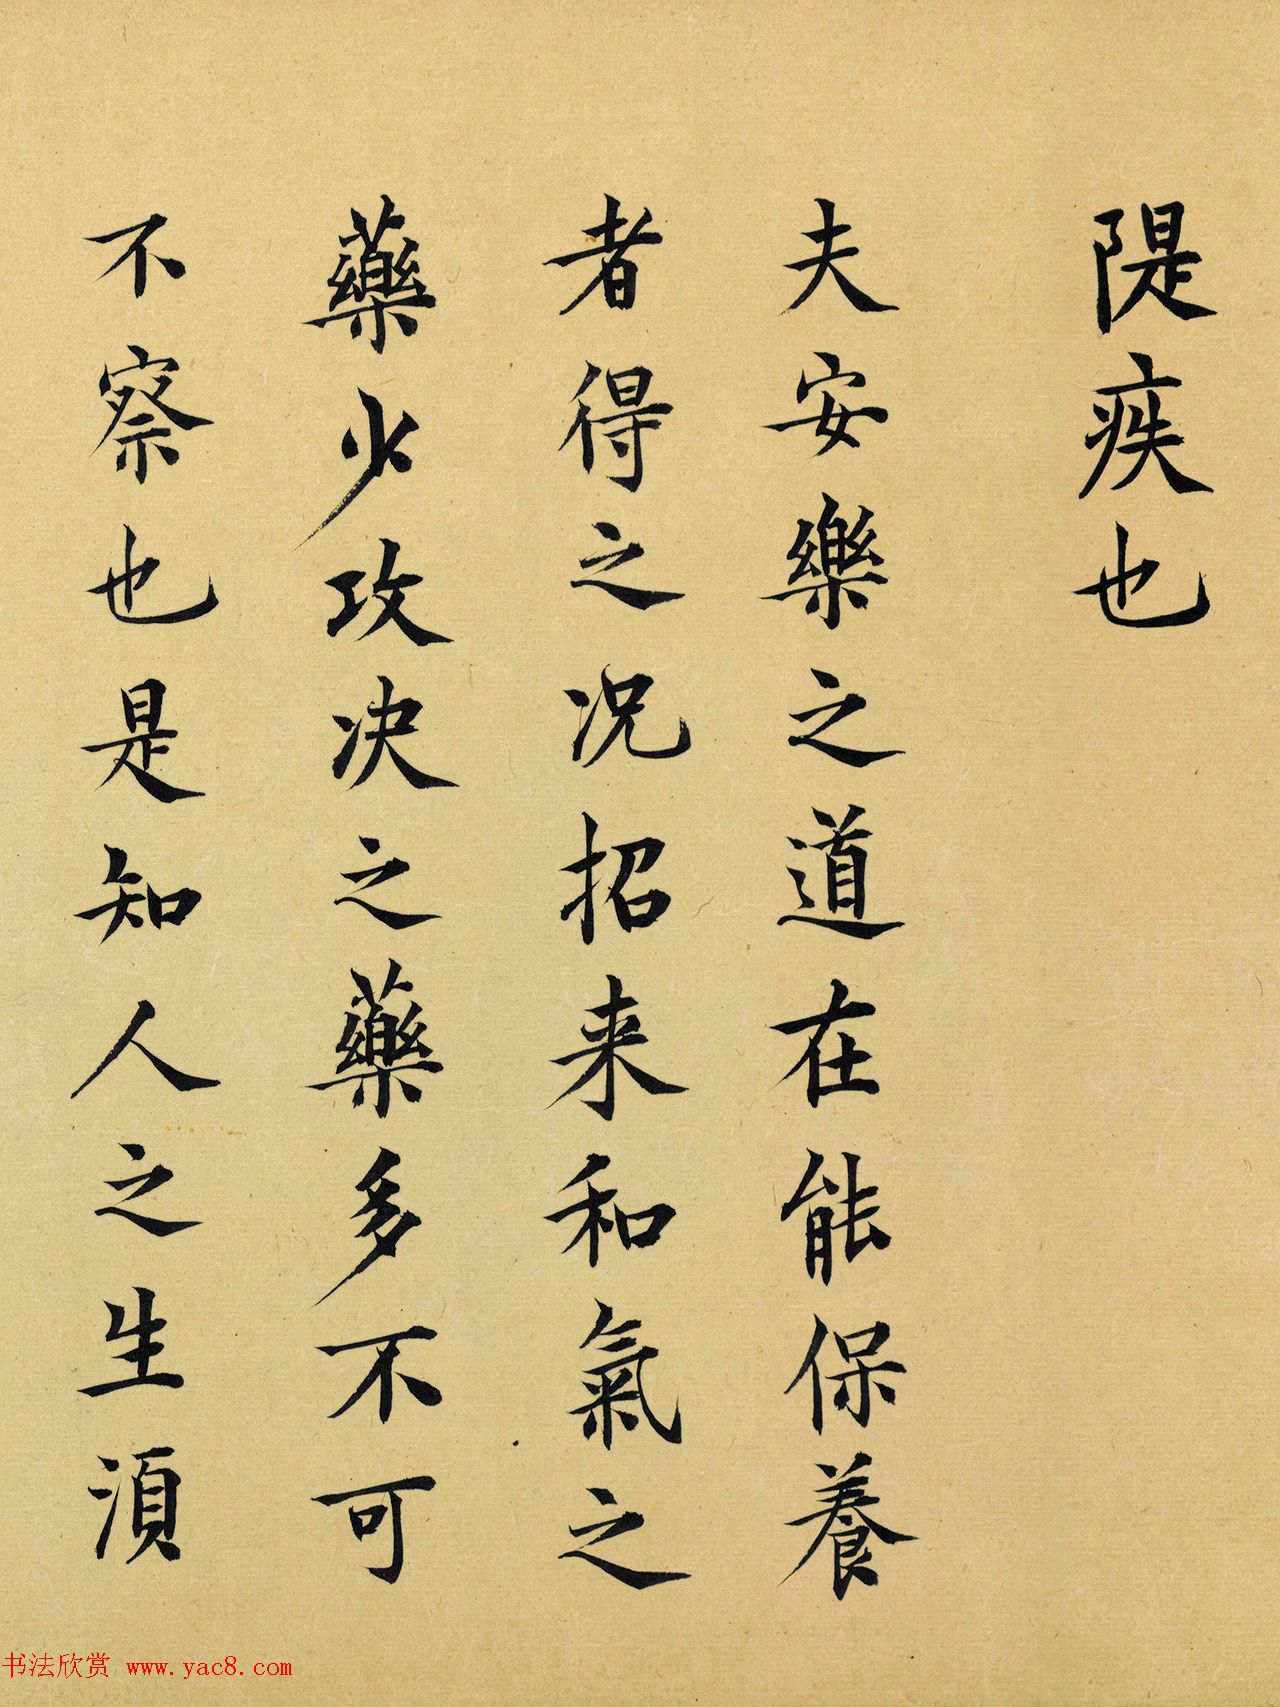 隄疾也
夫安樂之道在能保養
者得之况招来和氣之
藥少攻决之藥多不可
不察也是知人之生須
书法欣赏 www.yac8.com